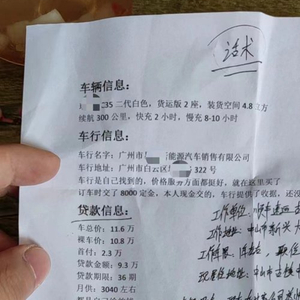 话术
车辆信息：
35 二代白色，货运版 2 座，装货空间 4.8 立方
续航 300 公里，快充 2 小时，慢充 8-10 小时
车行信息：
车行名字：广州市 能源汽车销售有限公司
车行地址：广州市白云区 322
车行是自己找到的，价格服务方面都挺好，就在这里买了
订车时交了 8000 定金，本人现金交的，车行提供了收据，还没
贷款信息：
车总价：11.6 万
裸车价：10.8 万
首付：2.3 万
贷款金额：9.3 万
贷款期限：36 期
月供：3040 左右
工作单位：